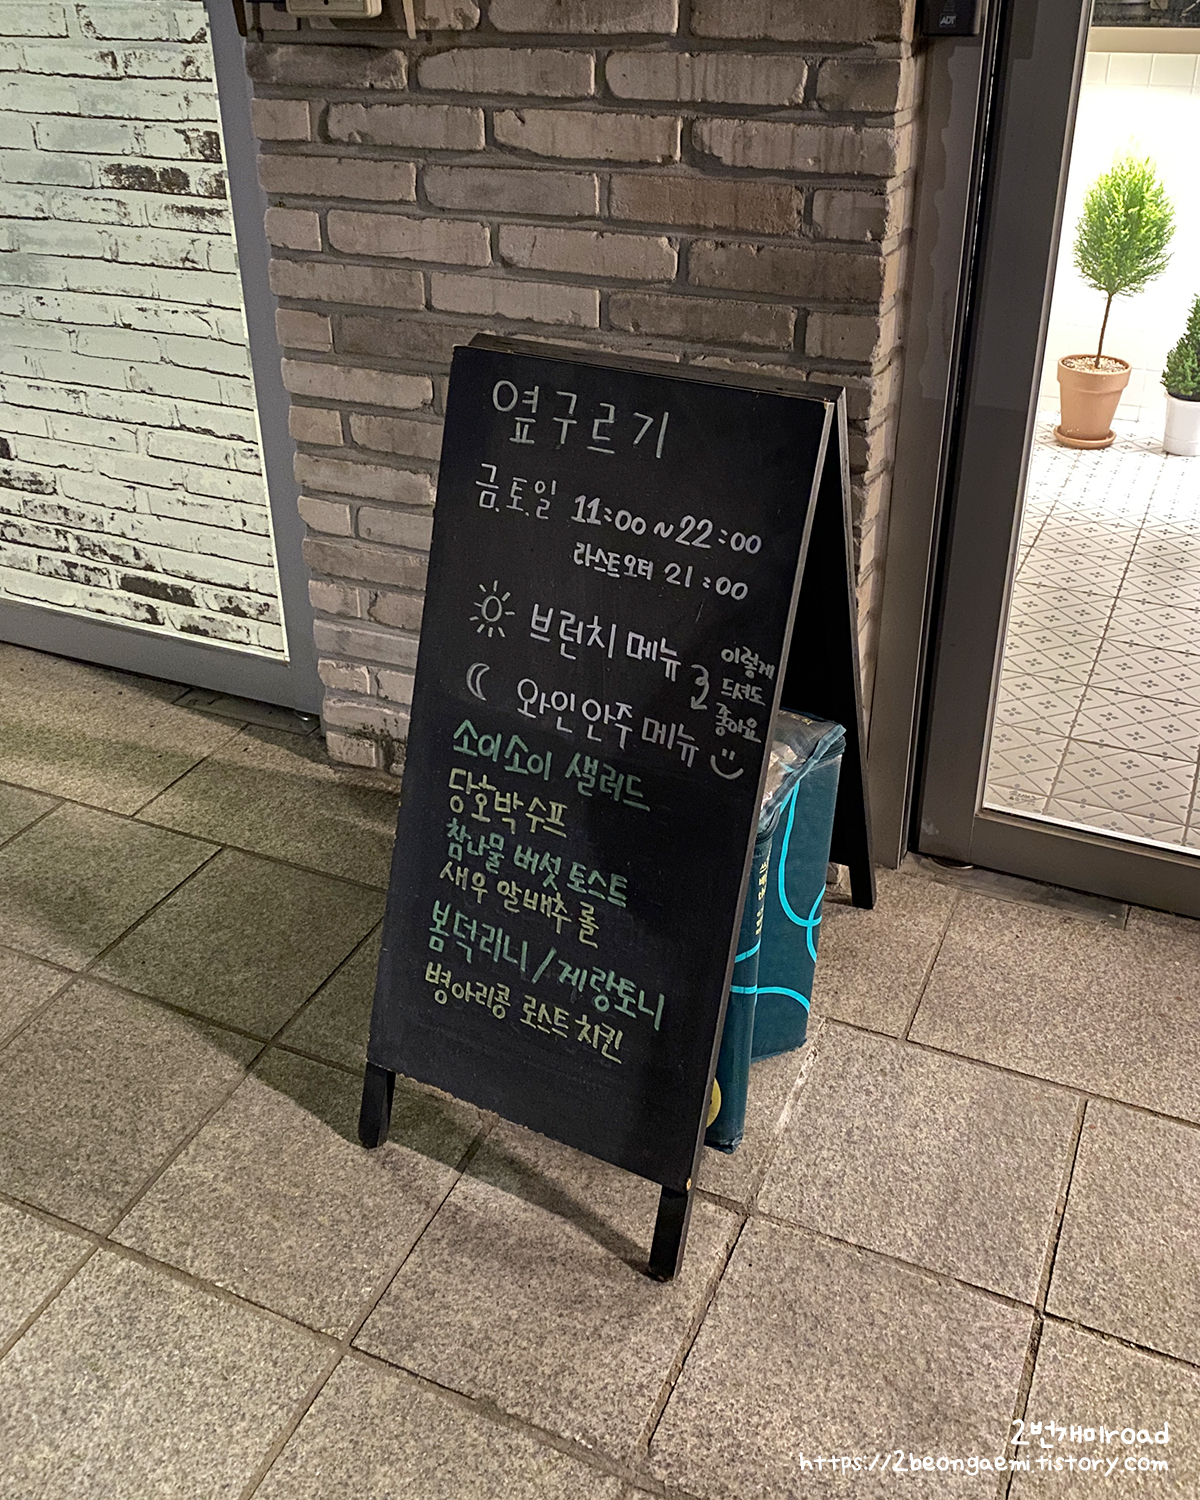 옆구르기
금.토.일 11:00~22:00
라스트오더 21:00
브런치 메뉴
와인안주 메뉴
이렇게
드셔도
좋아요
소이소이 샐러드
단호박 수프
참나물 버섯 토스트
새우 알배추 롤
봄덕리니/게랑토니
병아리콩 로스트 치킨
ADT
2번개미road
https://2beongaemi.tistory.com